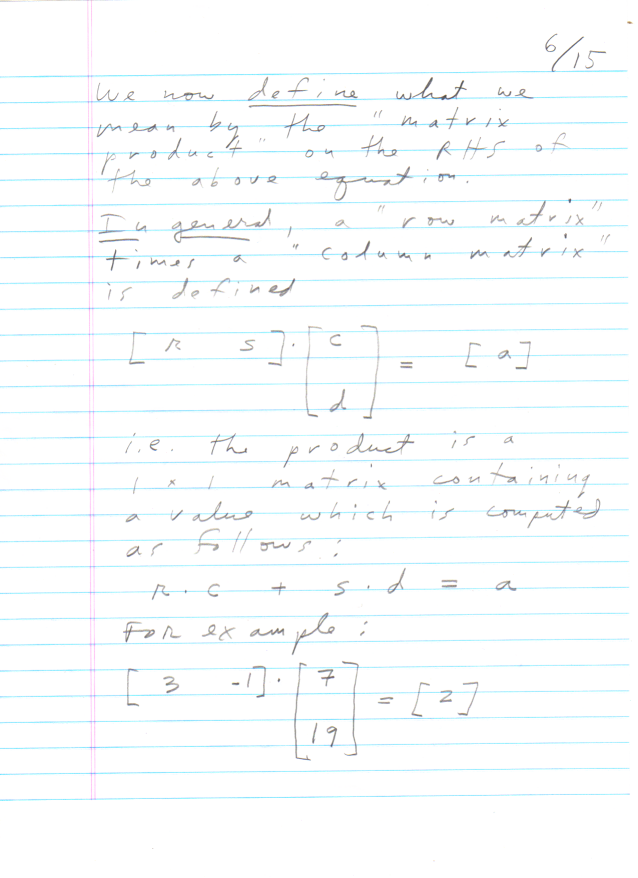 6/15
We now define what we
mean by the "matrix
product" on the RHS of
the above equation.
In general, a "row matrix"
times a "column matrix"
is defined
[ r s ] · [ c
d ] = [ a ]
i.e. the product is a
1 × 1 matrix containing
a value which is computed
as follows:
r · c + s · d = a
For example:
[ 3 -1 ] · [ 7
19 ] = [ 2 ]